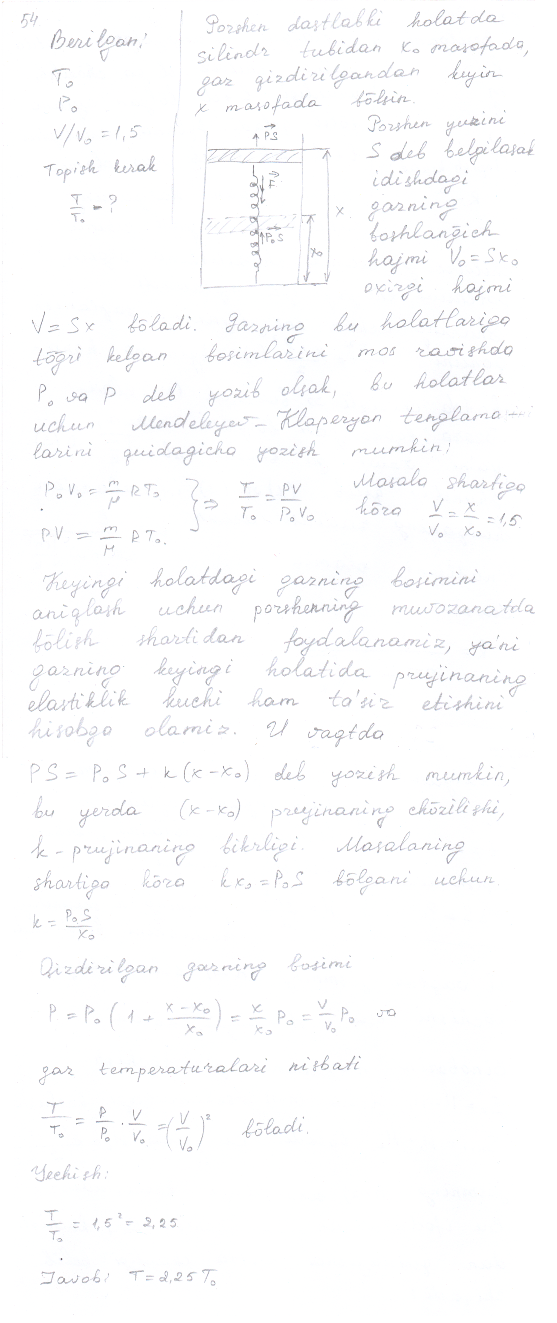 54
Berilgan:
T₀
P₀
V/V₀ = 1,5
Topish kerak
T/T₀ - ?
Porshen dastlabki holatda
silindr tubidan x₀ masofada,
gaz qizdirilgandan keyin
x masofada bōlsin.
Porshen yuzini
S deb belgilasak
idishdagi
gazning
boshlanğich
hajmi V₀ = Sx₀
oxirgi hajmi
PS
F
P₀S
x
x₀
V = Sx bōladi. Gazning bu holatlariga
tōğri kelgan bosimlarini mos ravishda
P₀ va P deb yozib olsak, bu holatlar
uchun Mendeleyev - Klapeyron tenglama -
larini quidagicha yozish mumkin:
P₀V₀ = m/μ RT₀ } ⇒ T/T₀ = PV/P₀V₀ Masala shartiga
PV = m/μ RT₀. kōra V/V₀ = x/x₀ = 1,5
Keyingi holatdagi gazning bosimini
aniqlash uchun porshenning muvozanatda
bōlish shartidan foydalanamiz, ya'ni
gazning keyingi holatida prujinaning
elastiklik kuchi ham ta'sir etishini
hisobga olamiz. U vaqtda
PS = P₀S + k(x - x₀) deb yozish mumkin,
bu yerda (x - x₀) prujinaning chōzilishi,
k - prujinaning bikrligi. Masalaning
shartiga kōra kx₀ = P₀S bōlgani uchun
k = P₀S/x₀
Qizdirilgan gazning bosimi
P = P₀(1 + (x - x₀)/x₀) = x/x₀ P₀ = V/V₀ P₀ va
gaz temperaturalari nisbati
T/T₀ = P/P₀ · V/V₀ = (V/V₀)² bōladi.
Yechish:
T/T₀ = 1,5² = 2,25
Javob: T = 2,25 T₀